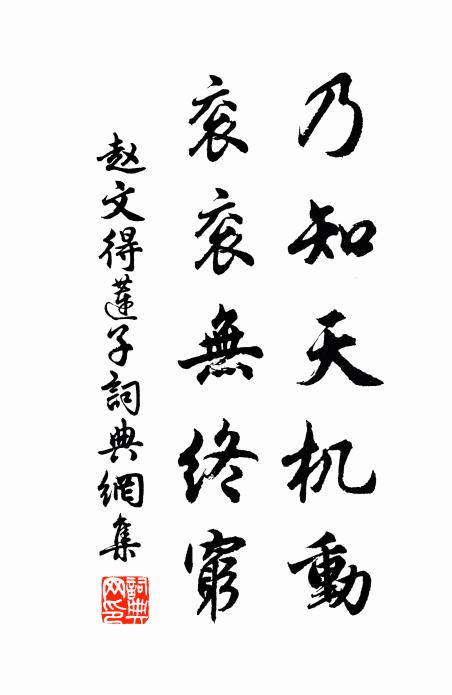 乃知天机動
衮衮無終窮
赵文得蓮子詞典網集
詞典網印